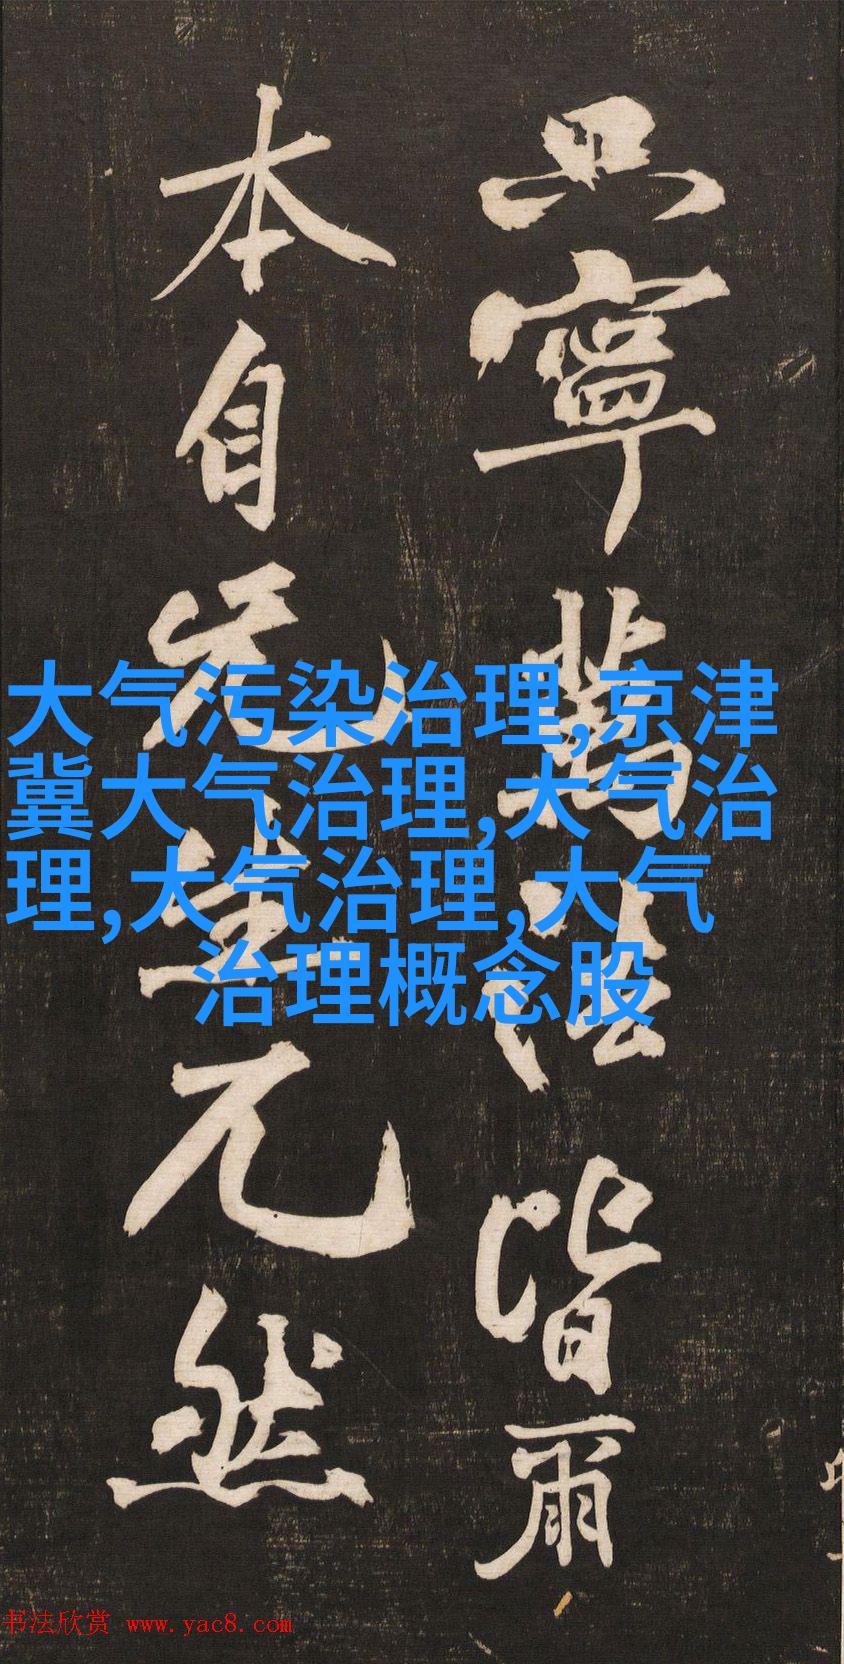 只寧萬法皆爾
本自无生兀然
大气污染治理,京津
冀大气治理,大气治
理,大气治理,大气
治理概念股
书法欣赏 www.yac8.com